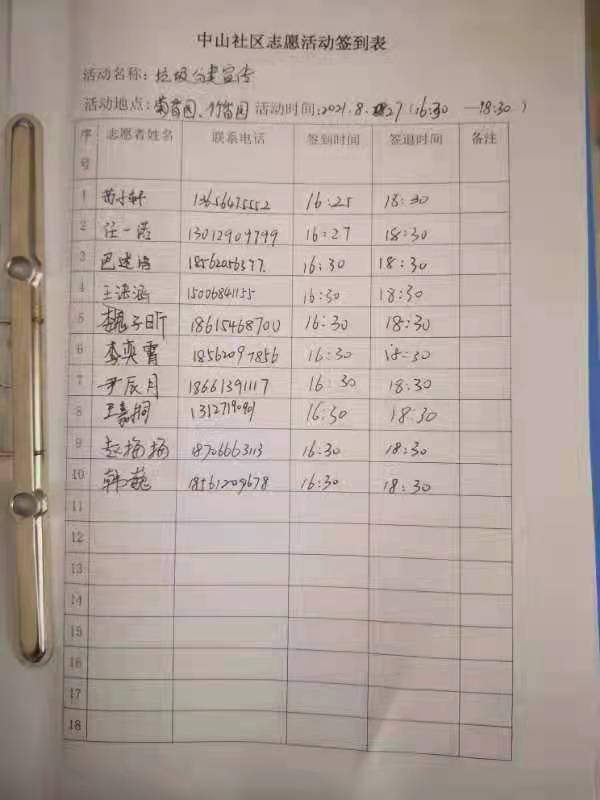 中山社区志愿活动签到表
活动名称：垃圾分类宣传
活动地点：菊香园、竹香园 活动时间：2021.8.27（16:30—18:30）
序号 志愿者姓名 联系电话 签到时间 签退时间 备注
1 13656475552 16:25 18:30
2 任一诺 13012909799 16:27 18:30
3 16:30 18:30
4 王洪涵 15006841155 16:30 18:30
5 魏子昕 18615468700 16:30 18:30
6 李奕霄 18562097856 16:30 18:30
7 尹辰月 18661391117 16:30 18:30
8 王嘉桐 16:30 18:30
9 赵梅梅 18706663113 16:30 18:30
10 韩巍 18561209678 16:30 18:30
11
12
13
14
15
16
17
18